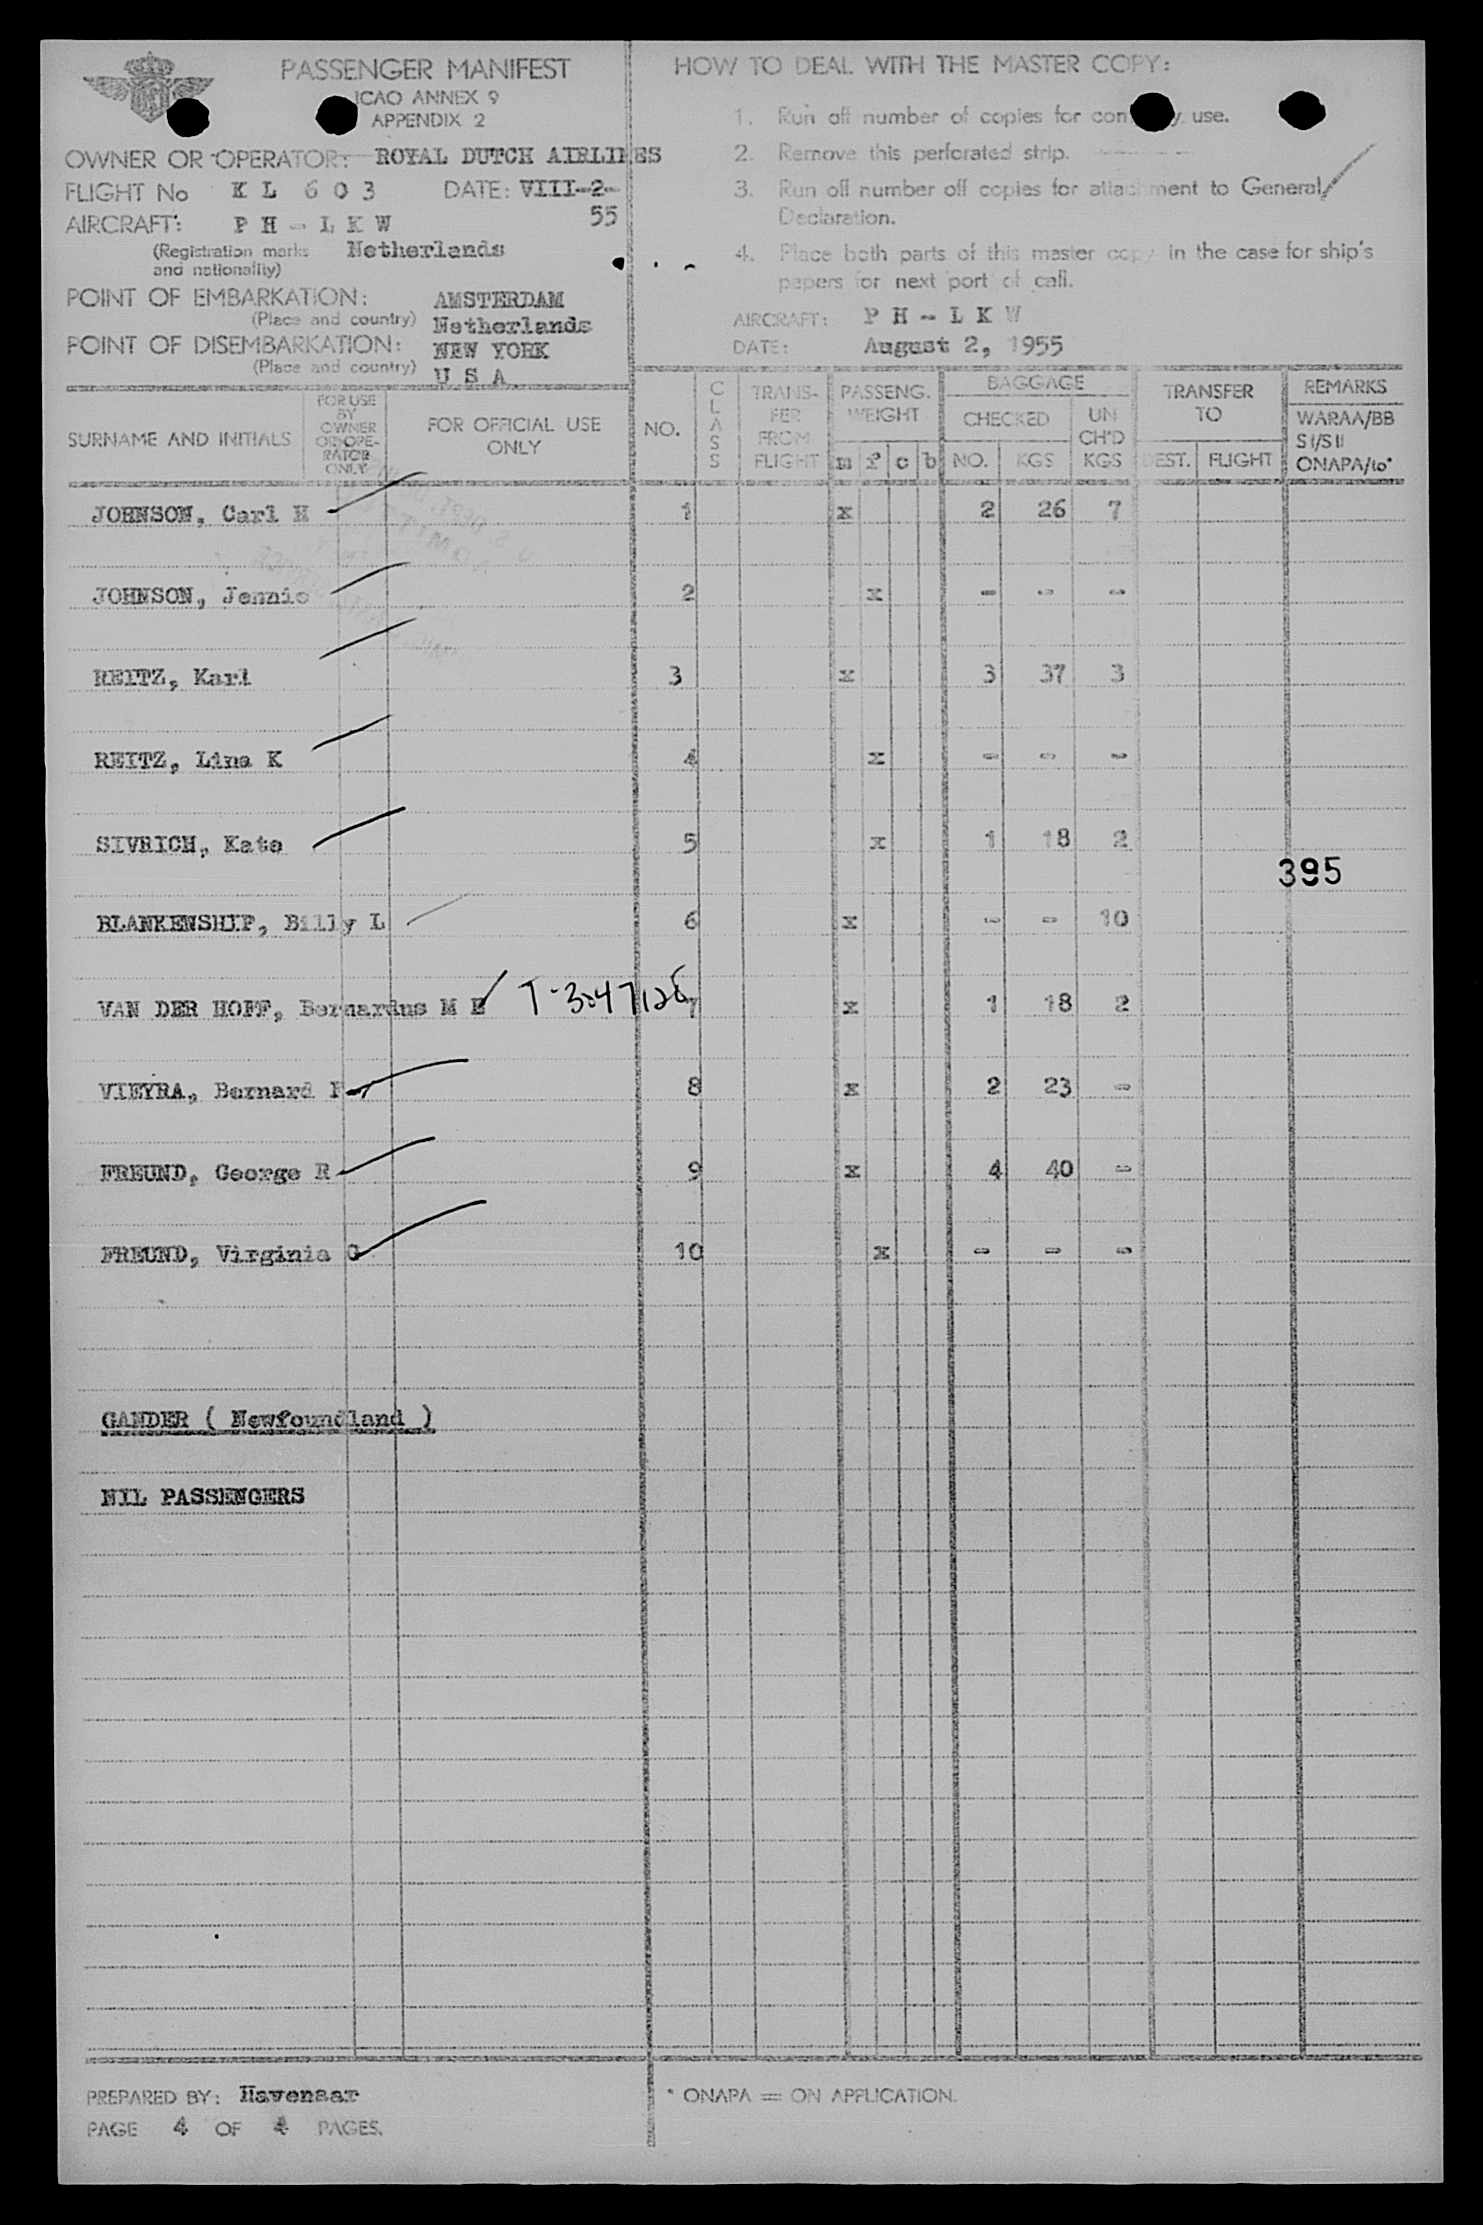 PASSENGER MANIFEST
ICAO ANNEX 9
APPENDIX 2
OWNER OR OPERATOR: ROYAL DUTCH AIRLINES
FLIGHT No K L 6 0 3 DATE: VIII-2-
55
AIRCRAFT: P H - L K W
(Registration marks Netherlands
and nationality)
POINT OF EMBARKATION: AMSTERDAM
(Place and country) Netherlands
POINT OF DISEMBARKATION: NEW YORK
(Place and country) U S A
HOW TO DEAL WITH THE MASTER COPY:
1. Run off number of copies for company use.
2. Remove this perforated strip.
3. Run off number off copies for attachment to General
Declaration.
4. Place both parts of this master copy in the case for ship's
papers for next port of call.
AIRCRAFT: P H - L K W
DATE: August 2, 1955
SURNAME AND INITIALS
FOR USE
BY
OWNER
OR OPE-
RATOR
ONLY
FOR OFFICIAL USE
ONLY
NO.
CLASS
TRANS-
FER
FROM
FLIGHT
PASSENG.
WEIGHT
m f c b
BAGGAGE
CHECKED
NO. KGS
UN
CH'D
KGS
TRANSFER
TO
DEST. FLIGHT
REMARKS
WARAA/BB
S I/S II
ONAPA/to*
JOHNSON, Carl H 1 x 2 26 7
JOHNSON, Jennie 2 x - - -
REITZ, Karl 3 x 3 37 3
REITZ, Lina K 4 x - - -
SIVRICH, Kate 5 x 1 18 2
395
BLANKENSHIP, Billy L 6 x - - 10
VAN DER HOFF, Bernardus M E T-3047128 7 x 1 18 2
VIEYRA, Bernard F 8 x 2 23 -
FREUND, George R 9 x 4 40 -
FREUND, Virginia G 10 x - - -
GANDER ( Newfoundland )
NIL PASSENGERS
PREPARED BY: Havenaar
PAGE 4 OF 4 PAGES.
* ONAPA = ON APPLICATION.